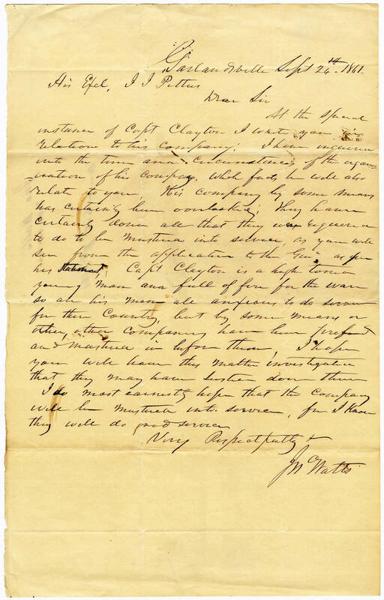 Garlandville Sept 24th 1861.
His Exel, J J Pettus
Dear Sir
At the special
instance of Capt Clayton I write you in
relation to his company; I have enquired
into the time and circumstances of the organ
ization of the company, which facts he will also
relate to you. His company by some means
has certainly been overlooked, They have
certainly done all that they was required
to do to be mustered into service, as you will
see from the application to the Gov. as per
his statement, Capt Clayton is a high toned
young man and full of fire for the war
so are his men all anxious to do service
for their Country, but by some means or
other, other Companies have been prefered
and mustered in before them, I hope
you will have this matter investigated
that they may have justice done them
I do most earnestly hope that the Company
will be mustered into service, for I know
they will do good service
Very Respectfully &
J W Watts